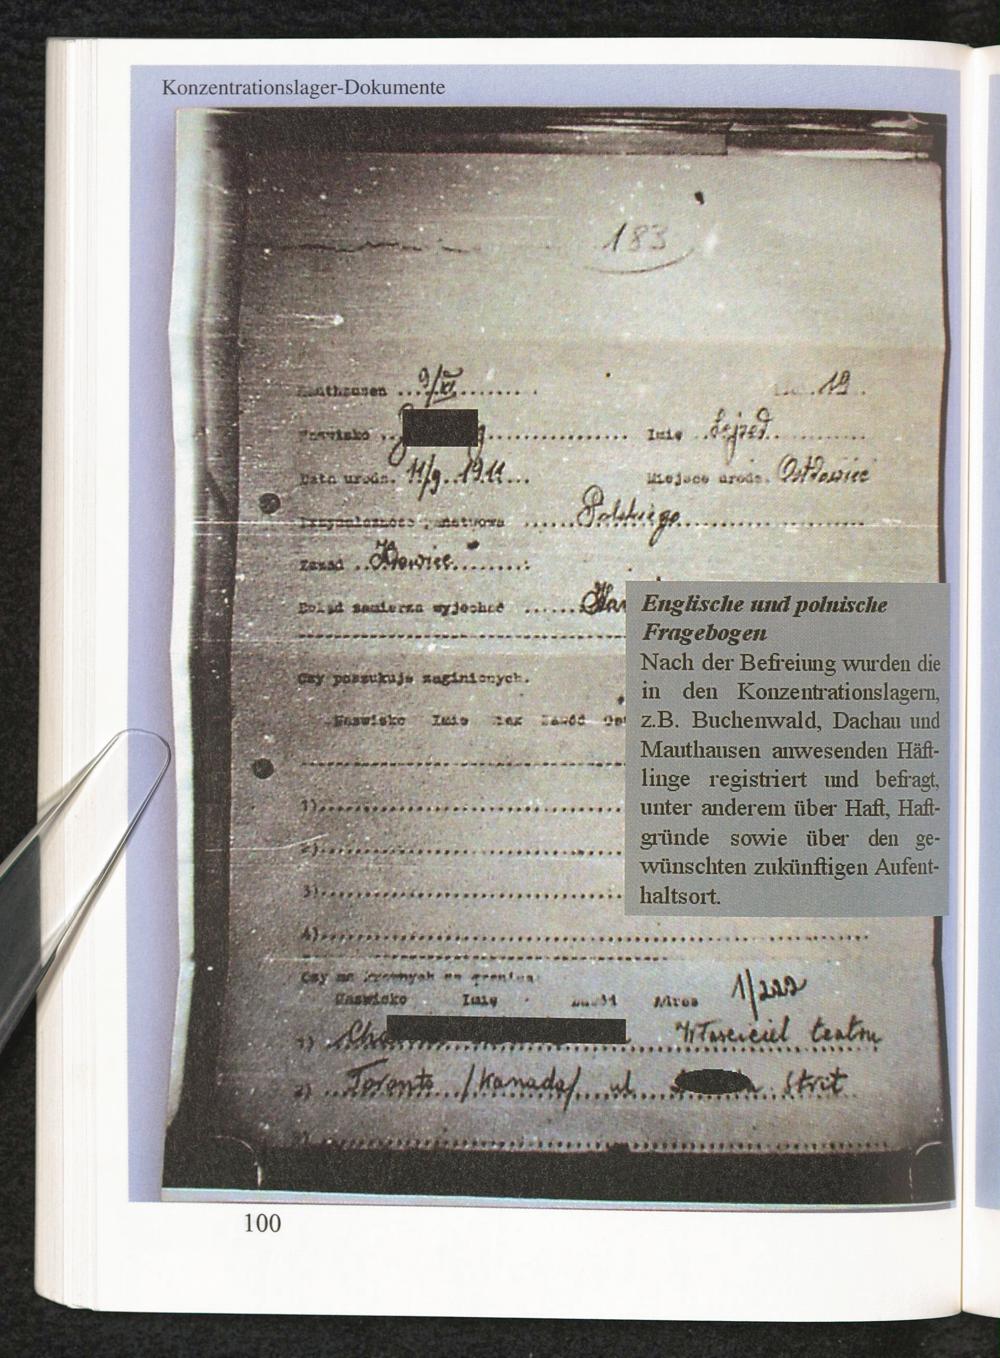 Konzentrationslager-Dokumente
183
Mauthausen ...9/XI......... 19
Nazwisko ... Imię ..Lejzed..
Data urodz. 11/9..1911... Miejsce urodz. Ostrowiec
Przynależność państwowa ......Polskiego......
Zawód ..
Dokąd zamierza wyjechać ......
Czy poszukuje zaginionych.
Nazwisko Imię Zawód
1)
2)
3)
4)
Czy ma krewnych za granicą:
Nazwisko Imię Zawód Adres 1/222
1) Własciciel teatru
2) Toronto /Kanada/ ul Strit
3)
Englische und polnische
Fragebogen
Nach der Befreiung wurden die
in den Konzentrationslagern,
z.B. Buchenwald, Dachau und
Mauthausen anwesenden Häft-
linge registriert und befragt,
unter anderem über Haft, Haft-
gründe sowie über den ge-
wünschten zukünftigen Aufent-
haltsort.
100